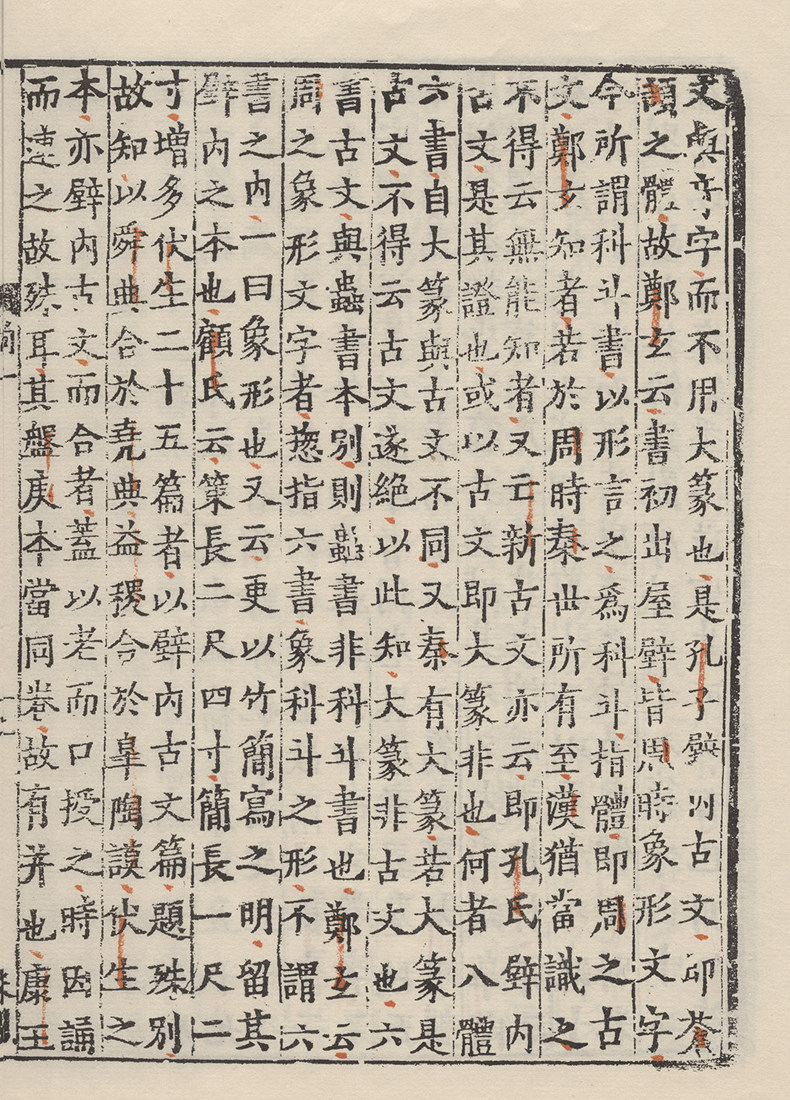 文與奇字而不用大篆也是孔子壁內古文即蒼
頡之體故鄭玄云書初出屋壁皆周時象形文字
今所謂科斗書以形言之爲科斗指體即周之古
文鄭玄知者若於周時秦世所有至漢猶當識之
不得云無能知者又亡新古文亦云即孔氏壁内
古文是其證也或以古文即大篆非也何者八體
六書自大篆與古文不同又秦有大篆若大篆是
古文不得云古文遂絶以此知大篆非古文也六
書古文與蟲書本別則蟲書非科斗書也鄭玄云
周之象形文字者惣指六書象科斗之形不謂六
書之内一曰象形也又云更以竹簡寫之明留其
壁内之本也顧氏云策長二尺四寸簡長一尺二
寸增多伏生二十五篇者以壁内古文篇題殊別
故知以舜典合於堯典益稷合於皐陶謨伏生之
本亦壁内古文而合者蓋以老而口授之時因誦
而連之故殊耳其盤庚本當同卷故有并也康王